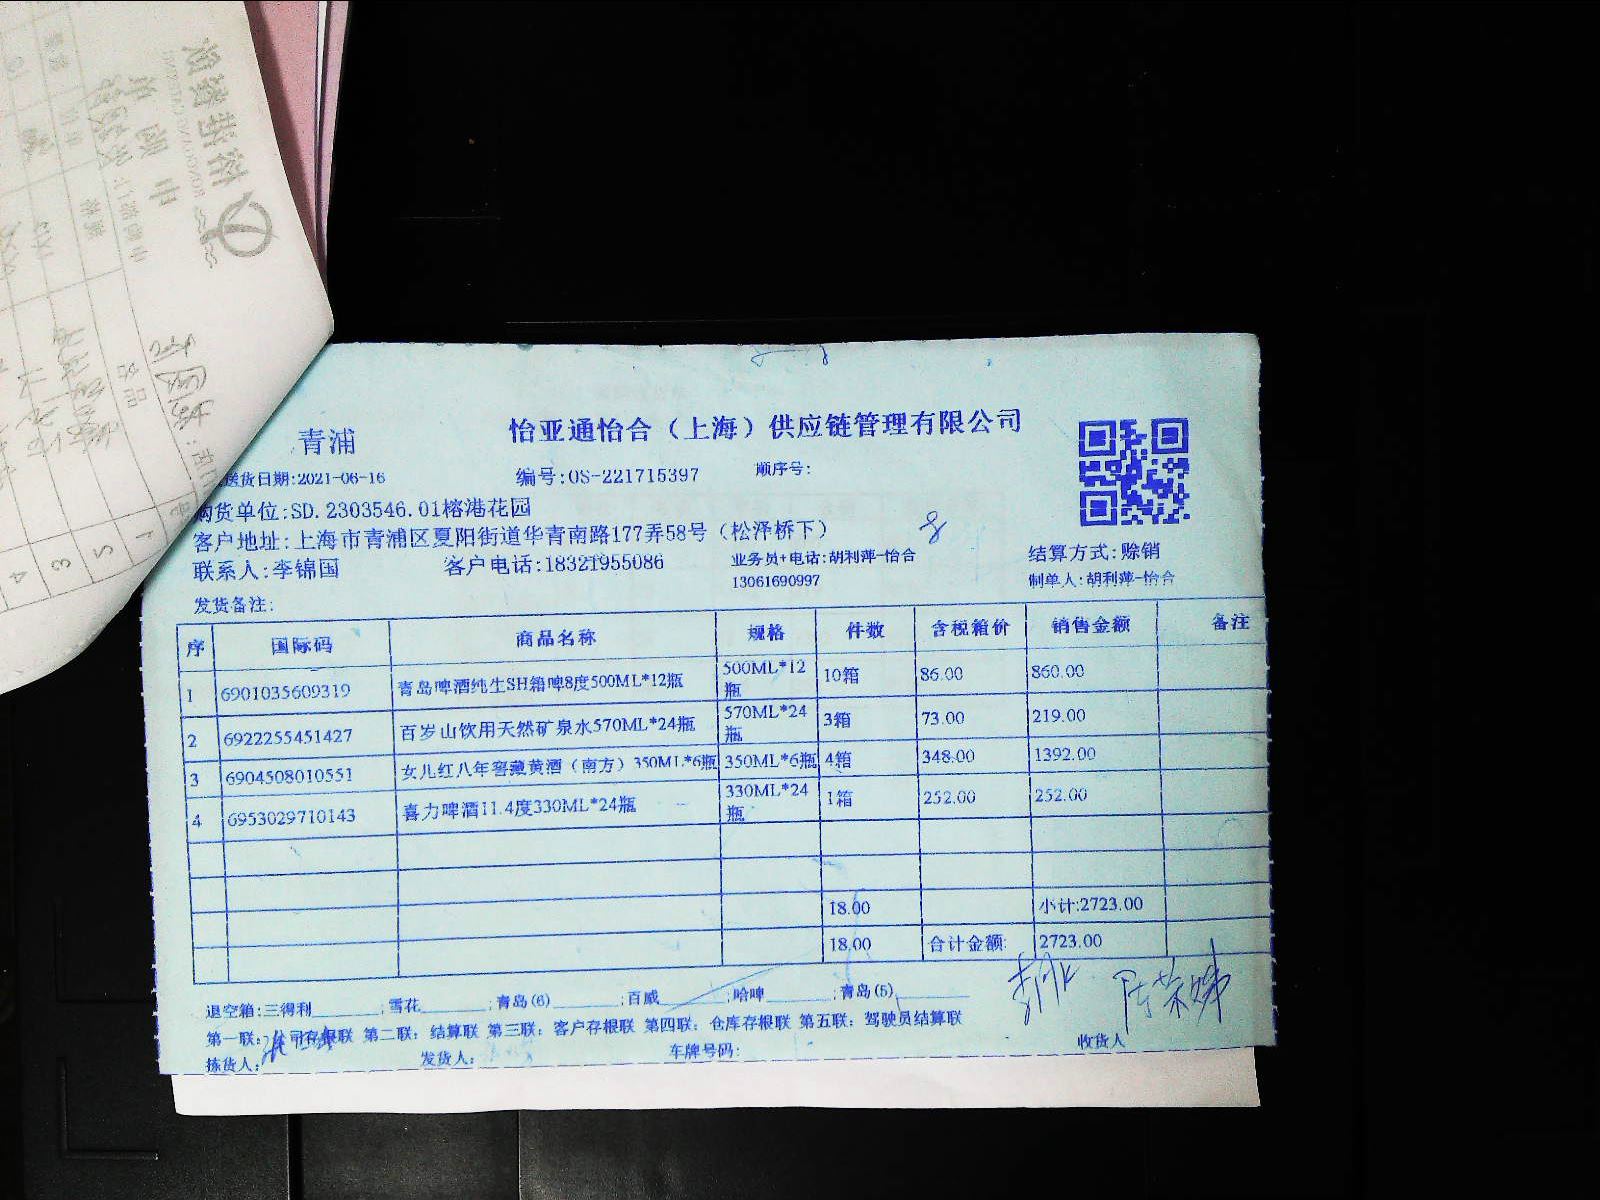 怡亚通怡合（上海）供应链管理有限公司
青浦
送货日期:2021-06-16 编号:OS-221715397 顺序号:
购货单位:SD.2303546.01榕港花园
客户地址:上海市青浦区夏阳街道华青南路177弄58号（松泽桥下） 8
联系人:李锦国 客户电话:18321955086 业务员+电话:胡利萍-怡合 结算方式:赊销
13061690997 制单人:胡利萍-怡合
发货备注:
序 国际码 商品名称 规格 件数 含税箱价 销售金额 备注
1 6901035609319 青岛啤酒纯生SH箱啤8度500ML*12瓶 500ML*12瓶 10箱 86.00 860.00
2 6922255451427 百岁山饮用天然矿泉水570ML*24瓶 570ML*24瓶 3箱 73.00 219.00
3 6904508010551 女儿红八年窖藏黄酒（南方）350ML*6瓶 350ML*6瓶 4箱 348.00 1392.00
4 6953029710143 喜力啤酒11.4度330ML*24瓶 330ML*24瓶 1箱 252.00 252.00
18.00 小计:2723.00
18.00 合计金额: 2723.00
退空箱:三得利______;雪花______;青岛(6)______;百威______;哈啤______;青岛(5)______
第一联:公司存根联 第二联:结算联 第三联:客户存根联 第四联:仓库存根联 第五联:驾驶员结算联
拣货人: 发货人: 车牌号码: 收货人